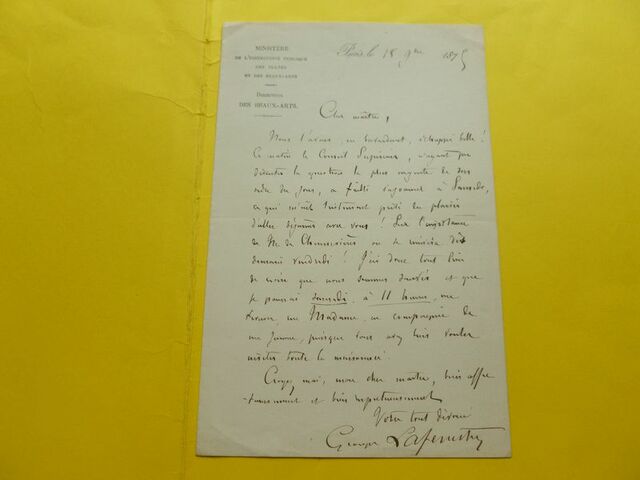 MINISTÈRE
DE L'INSTRUCTION PUBLIQUE
DES CULTES
ET DES BEAUX-ARTS
Direction
DES BEAUX-ARTS.
Paris, le 18 9bre 1875
Cher maître,
Nous l'avons, en bavardant, échappé belle !
Ce matin le Conseil Supérieur, n'ayant pu
discuter la question la plus urgente de son
ordre du jour, a failli s'ajourner à Samedi,
ce qui m'eût tristement privé du plaisir
d'aller déjeuner avec vous ! Sur l'insistance
de M. de Chennevières on se réunira dès
demain vendredi ! J'ai donc tout lieu
de croire que nous sommes sauvés et que
je pourrai samedi, à 11 heures, me
trouver Madame en compagnie de
ma femme, puisque vous avez bien voulu
inviter toute la maisonnée.
Croyez, moi, mon cher maître, bien affec
-tueusement et bien respectueusement
Votre tout dévoué
Georges Lafenestre